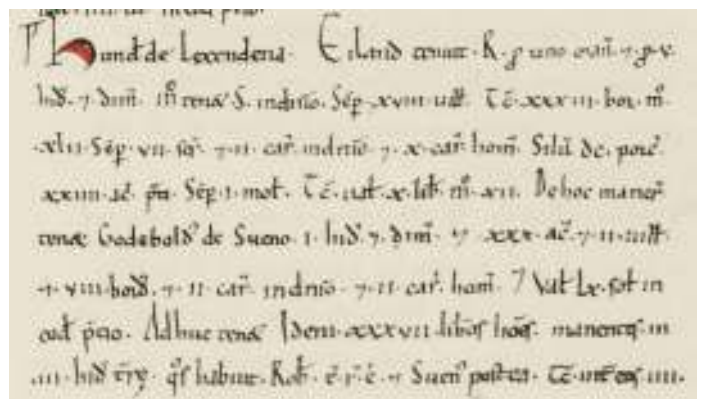 Hund de Lexendena. Eiland tenuit. R. p uno man. 7 p. v.
hid. 7 dim. m tenet S. indnio. Sep. xviii. uill. Tc. xxxiii. bor. m.
xlii. Sep. vii. ser. 7 ii. car. indnio. 7. x. car. hom. Silu dc. porc.
xxiiii. ac. pti. Sep. i. mol. Tc. ual. x. lib. m. xii. De hoc maner
tenet Godebold de Sueno. i. hid. 7. dim. 7 xxx. ac. 7. ii. uill.
7. viii. bord. 7. ii. car. indnio. 7. ii. car. hom. 7 Val. lx. sol. in
eod pcio. Adhuc tenet Idem. xxxvii. libos hoes. manentes. in
.iii. hid try. qs habuit. Rob. e. r. e. 7 Suen postea. Tc. int eos. iiii.